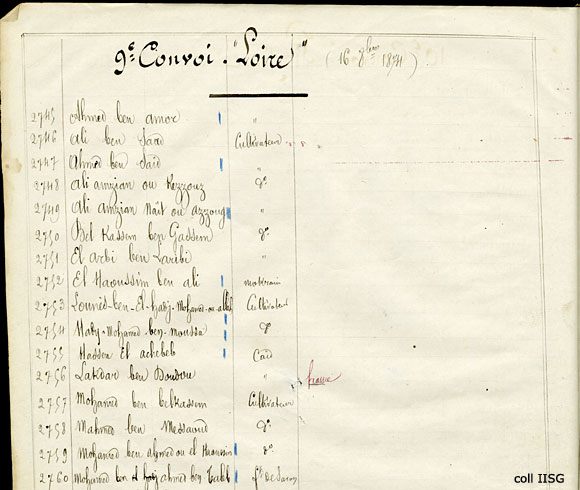 9e Convoi. "Loire" (16 8bre 1874)
2745 Ahmed ben amor "
2746 Ali ben Saïd Cultivateur " "
2747 Ahmed ben Saïd "
2748 Ali amzian ou Kezzouz do
2749 Ali amzian Naît ou azzoug "
2750 Bel Kassem ben Gassem do
2751 El arbi ben Laribi "
2752 El Haoussim ben ali mokrani
2753 Lounis-ben-El-hadj-Mohamed-ou-allel Cultivateur
2754 Hady-Mohamed-ben-moussa do
2755 Hassen El acheheb Caïd
2756 Lakdar ben Doudou "
2757 Mohamed ben belkassem Cultivateur
2758 Mahmed ben Messaoud do
2759 Mohamed ben ahmed ou el Haoussin do
2760 Mohamed ben el hadj ahmed ben
coll IISG